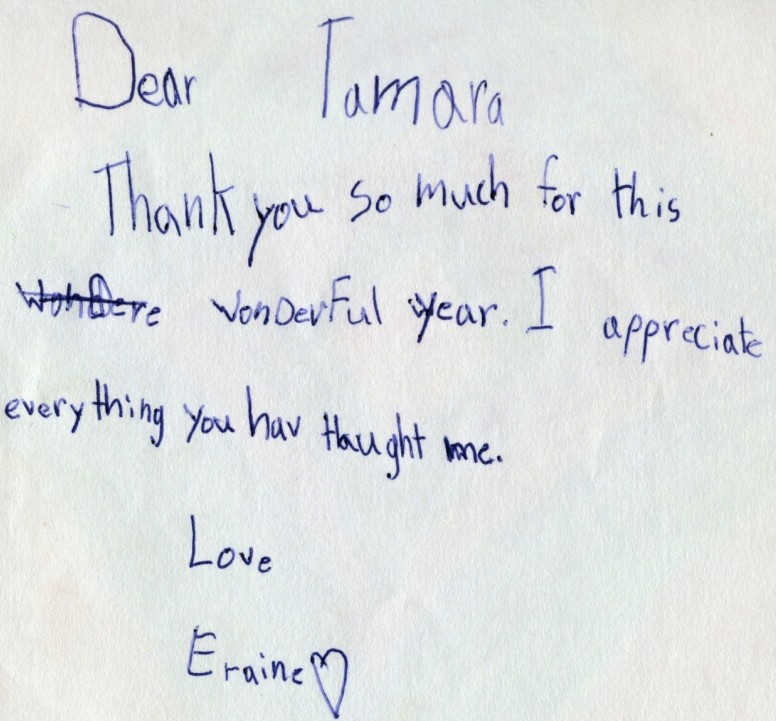 Dear Tamara
Thank you so much for this
Wondere WonDerFul year. I appreciate
everything you hav thaught me.
Love
Eraine♡